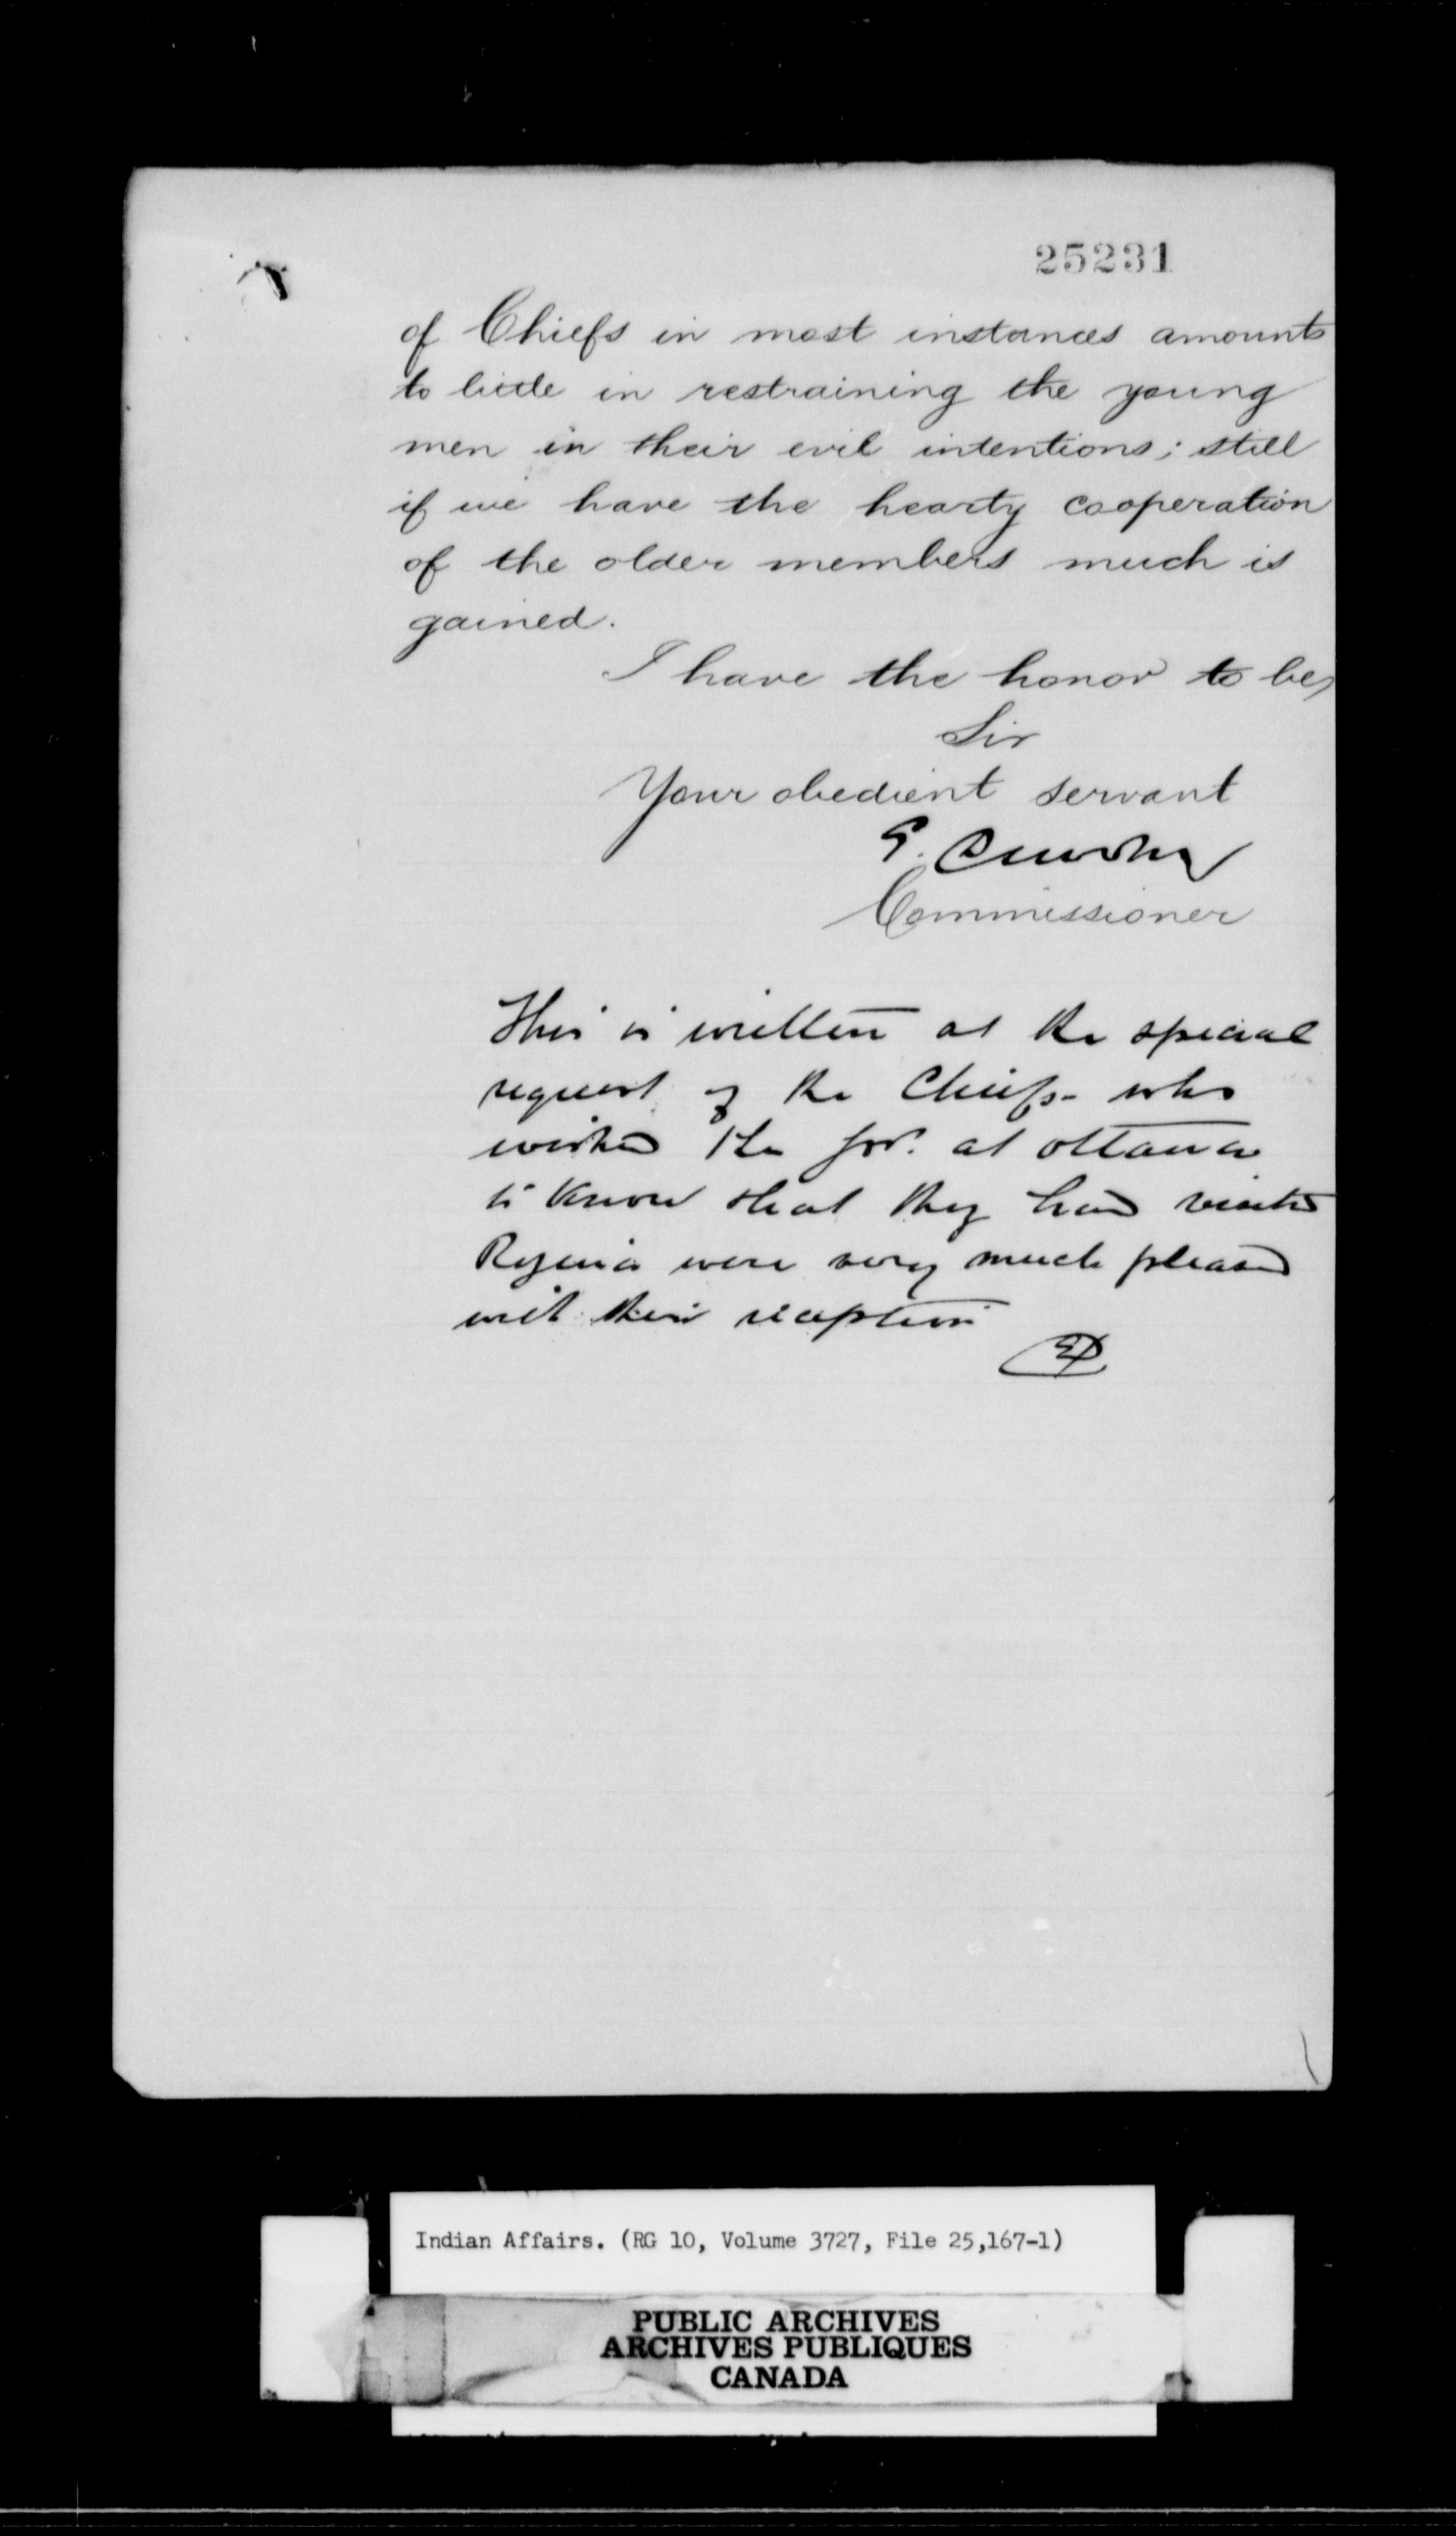 25231
of Chiefs in most instances amounts
to little in restraining the young
men in their evil intentions; still
if we have the hearty cooperation
of the older members much is
gained.
I have the honor to be,
Sir
Your obedient servant
E. Dewdney
Commissioner
This is written at the special
request of the Chiefs - who
wished the Gov. at Ottawa
to know that they had visited
Regina were very much pleased
with their reception
ED
Indian Affairs. (RG 10, Volume 3727, File 25,167-1)
PUBLIC ARCHIVES
ARCHIVES PUBLIQUES
CANADA